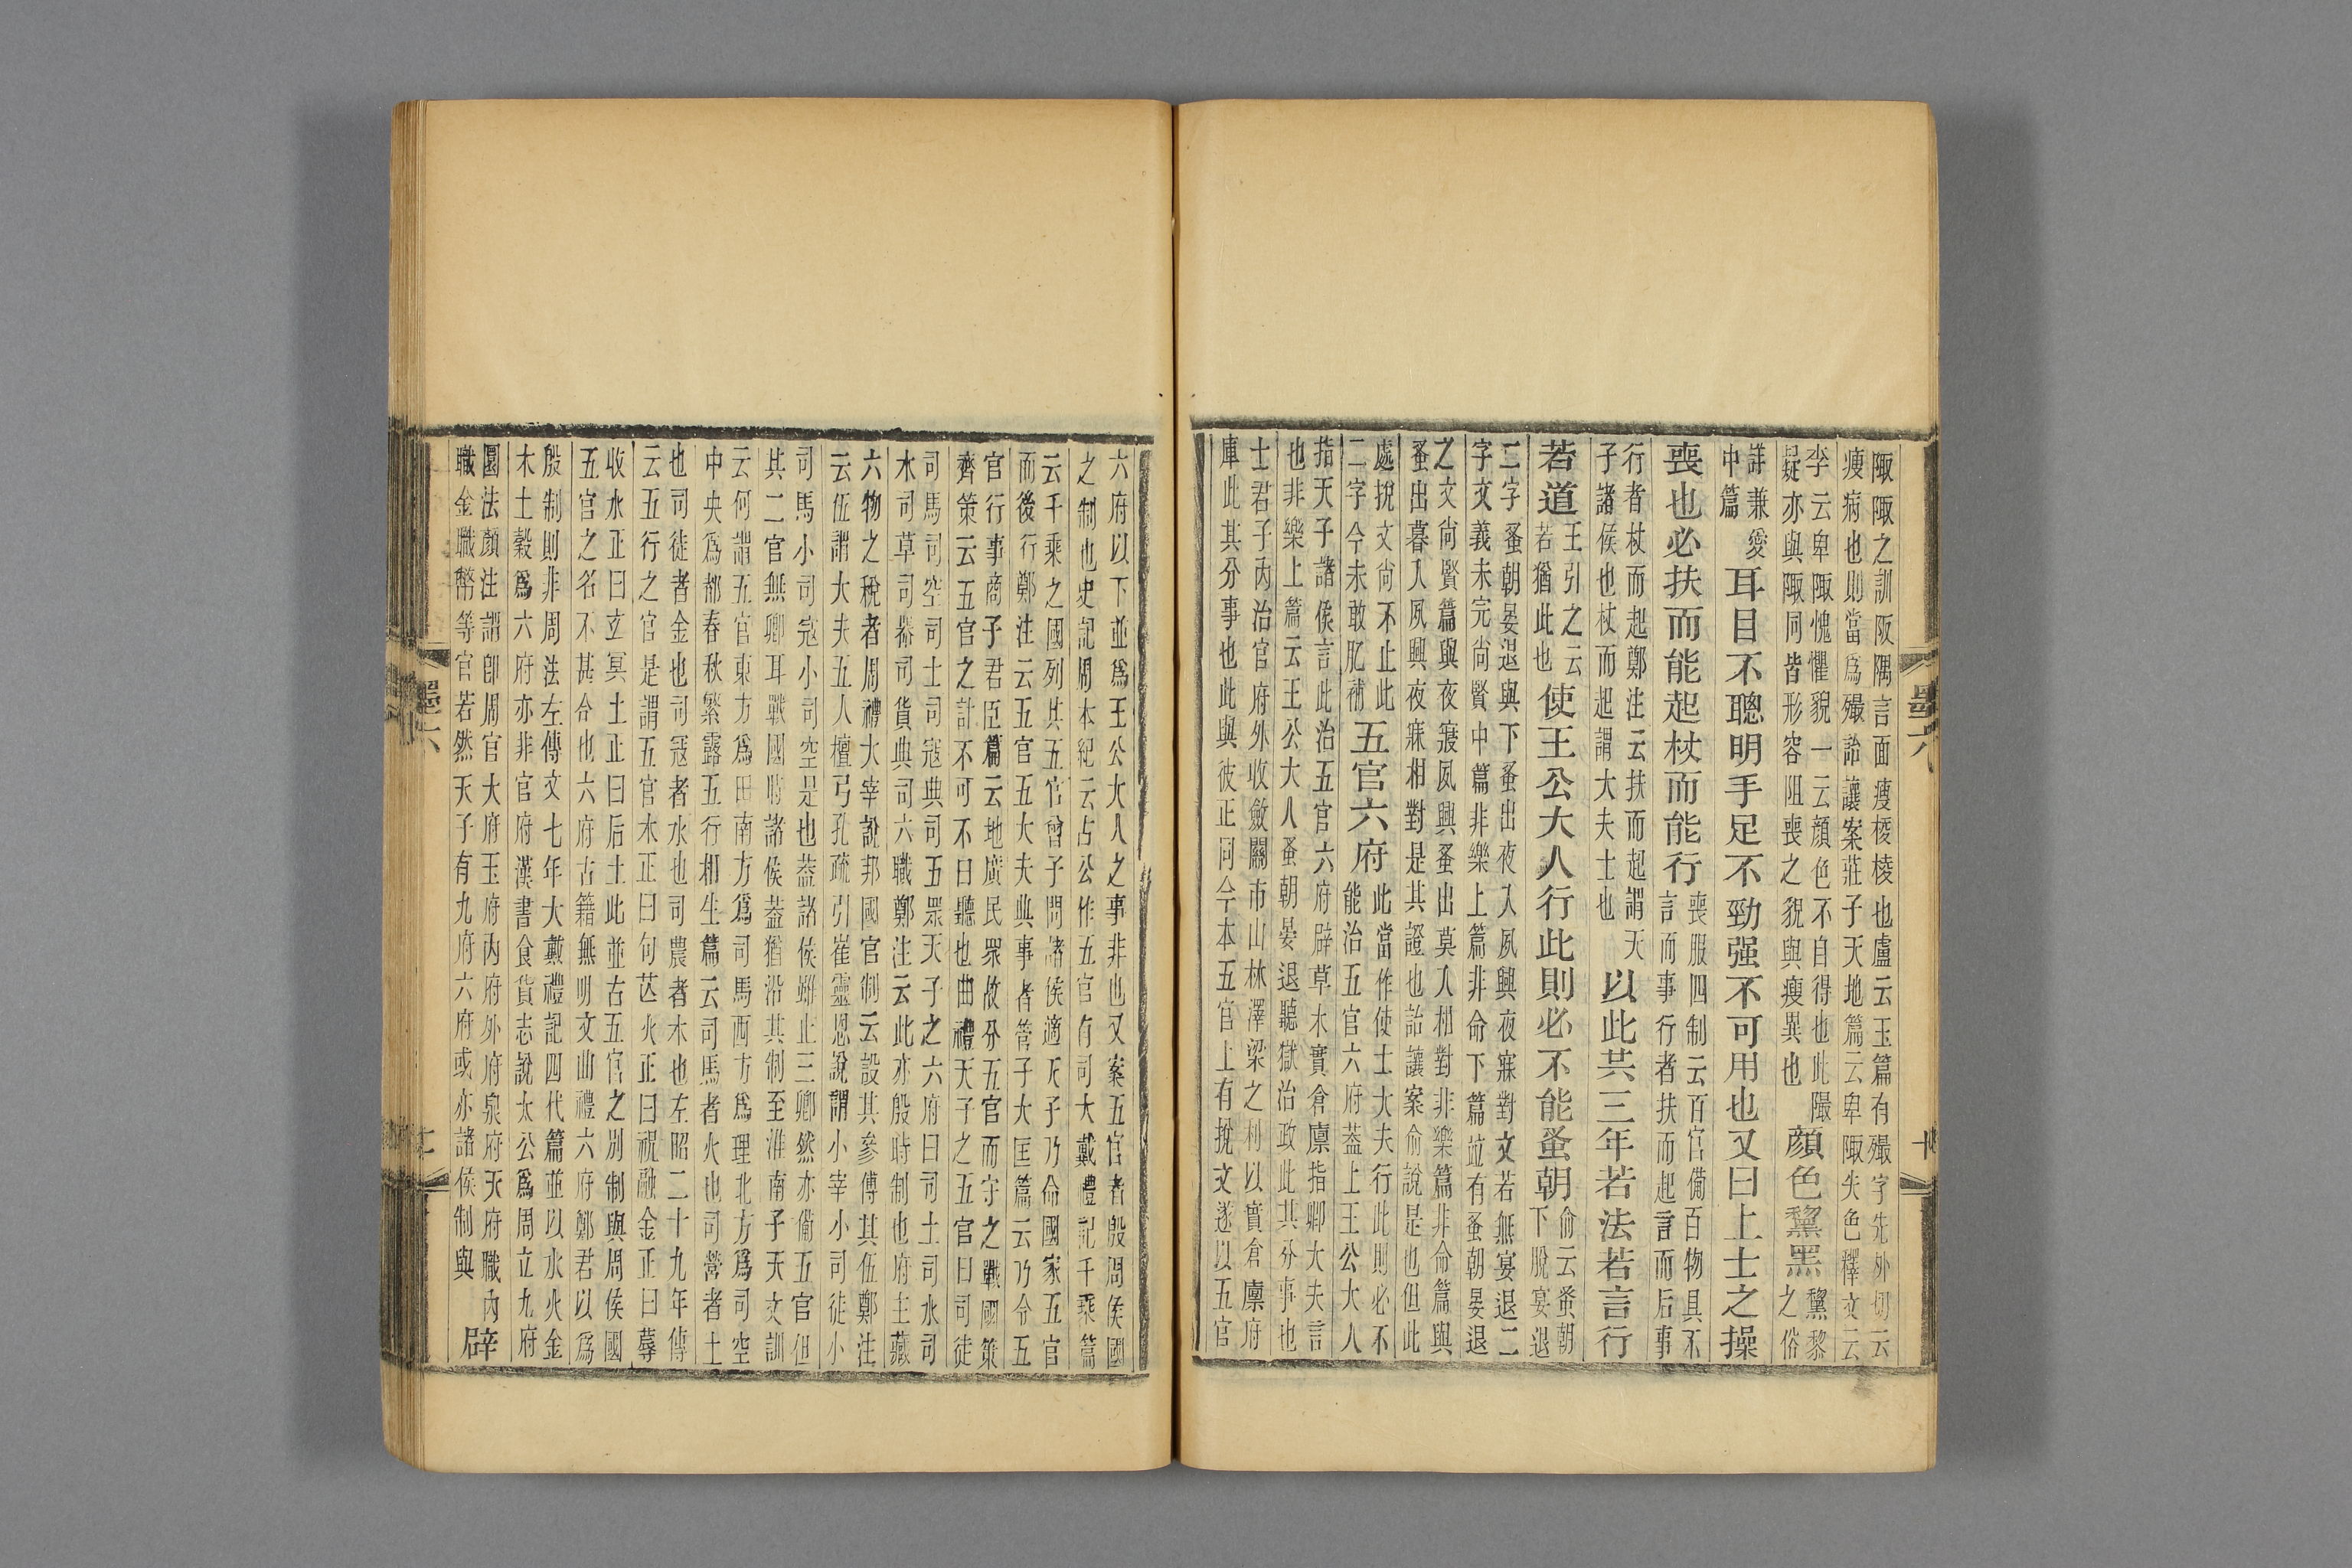 陬陬之訓阪隅言面瘦棱棱也盧云玉篇有㱡字先外切云
瘦病也則當爲㱡詒讓案莊子天地篇云卑陬失色釋文云
李云卑陬愧懼貌一云顏色不自得也此㱡
疑亦與陬同皆形容阻喪之貌與瘦異也
顏色黧黑
黧黎
之俗
詳兼愛
中篇
耳目不聰明手足不勁强不可用也又曰上士之操
喪也必扶而能起杖而能行
喪服四制云百官備百物具不
言而事行者扶而起言而后事
行者杖而起鄭注云扶而起謂天
子諸侯也杖而起謂大夫士也
以此共三年若法若言行
若道
王引之云
若猶此也
使王公大人行此則必不能蚤朝
俞云蚤朝
下脫宴退
二字蚤朝晏退與下蚤出夜入夙興夜寐對文若無宴退二
字文義未完尚賢中篇非樂上篇非命下篇竝有蚤朝晏退
之文尚賢篇與夜寢夙興蚤出莫入相對非樂篇非命篇與
蚤出暮入夙興夜寐相對是其證也詒讓案俞說是也但此
處挩文尚不止此
二字今未敢肊補
五官六府
此當作使士大夫行此則必不
能治五官六府蓋上王公大人
指天子諸侯言此治五官六府辟草木實倉廩指卿大夫言
也非樂上篇云王公大人蚤朝晏退聽獄治政此其分事也
士君子內治官府外收斂關市山林澤梁之利以實倉廩府
庫此其分事也此與彼正同今本五官上有挩文遂以五官
墨六
十
六府以下並爲王公大人之事非也又案五官者殷周侯國
之制也史記周本紀云古公作五官有司大戴禮記千乘篇
云千乘之國列其五官曾子問諸侯適天子乃命國家五官
而後行鄭注云五官五大夫典事者管子大匡篇云乃令五
官行事商子君臣篇云地廣民眾故分五官而守之戰國策
齊策云五官之計不可不日聽也曲禮天子之五官曰司徒
司馬司空司士司寇典司五眾天子之六府曰司土司水司
木司草司器司貨典司六職鄭注云此亦殷時制也府主藏
六物之稅者周禮大宰說邦國官制云設其參傅其伍鄭注
云伍謂大夫五人檀弓孔疏引崔靈恩說謂小宰小司徒小
司馬小司寇小司空是也蓋諸侯雖止三卿然亦備五官但
其二官無卿耳戰國時諸侯蓋猶沿其制至淮南子天文訓
云何謂五官東方爲田南方爲司馬西方爲理北方爲司空
中央爲都春秋繁露五行相生篇云司馬者火也司營者土
也司徒者金也司寇者水也司農者木也左昭二十九年傳
云五行之官是謂五官木正曰句芒火正曰祝融金正曰蓐
收水正曰玄冥土正曰后土此並古五官之別制與周侯國
五官之名不甚合也六府古籍無明文曲禮六府鄭君以爲
殷制則非周法左傳文七年大戴禮記四代篇並以水火金
木土穀爲六府亦非官府漢書食貨志說太公爲周立九府
圜法顏注謂卽周官大府玉府內府外府泉府天府職內
職金職幣等官若然天子有九府六府或亦諸侯制與
辟
墨六